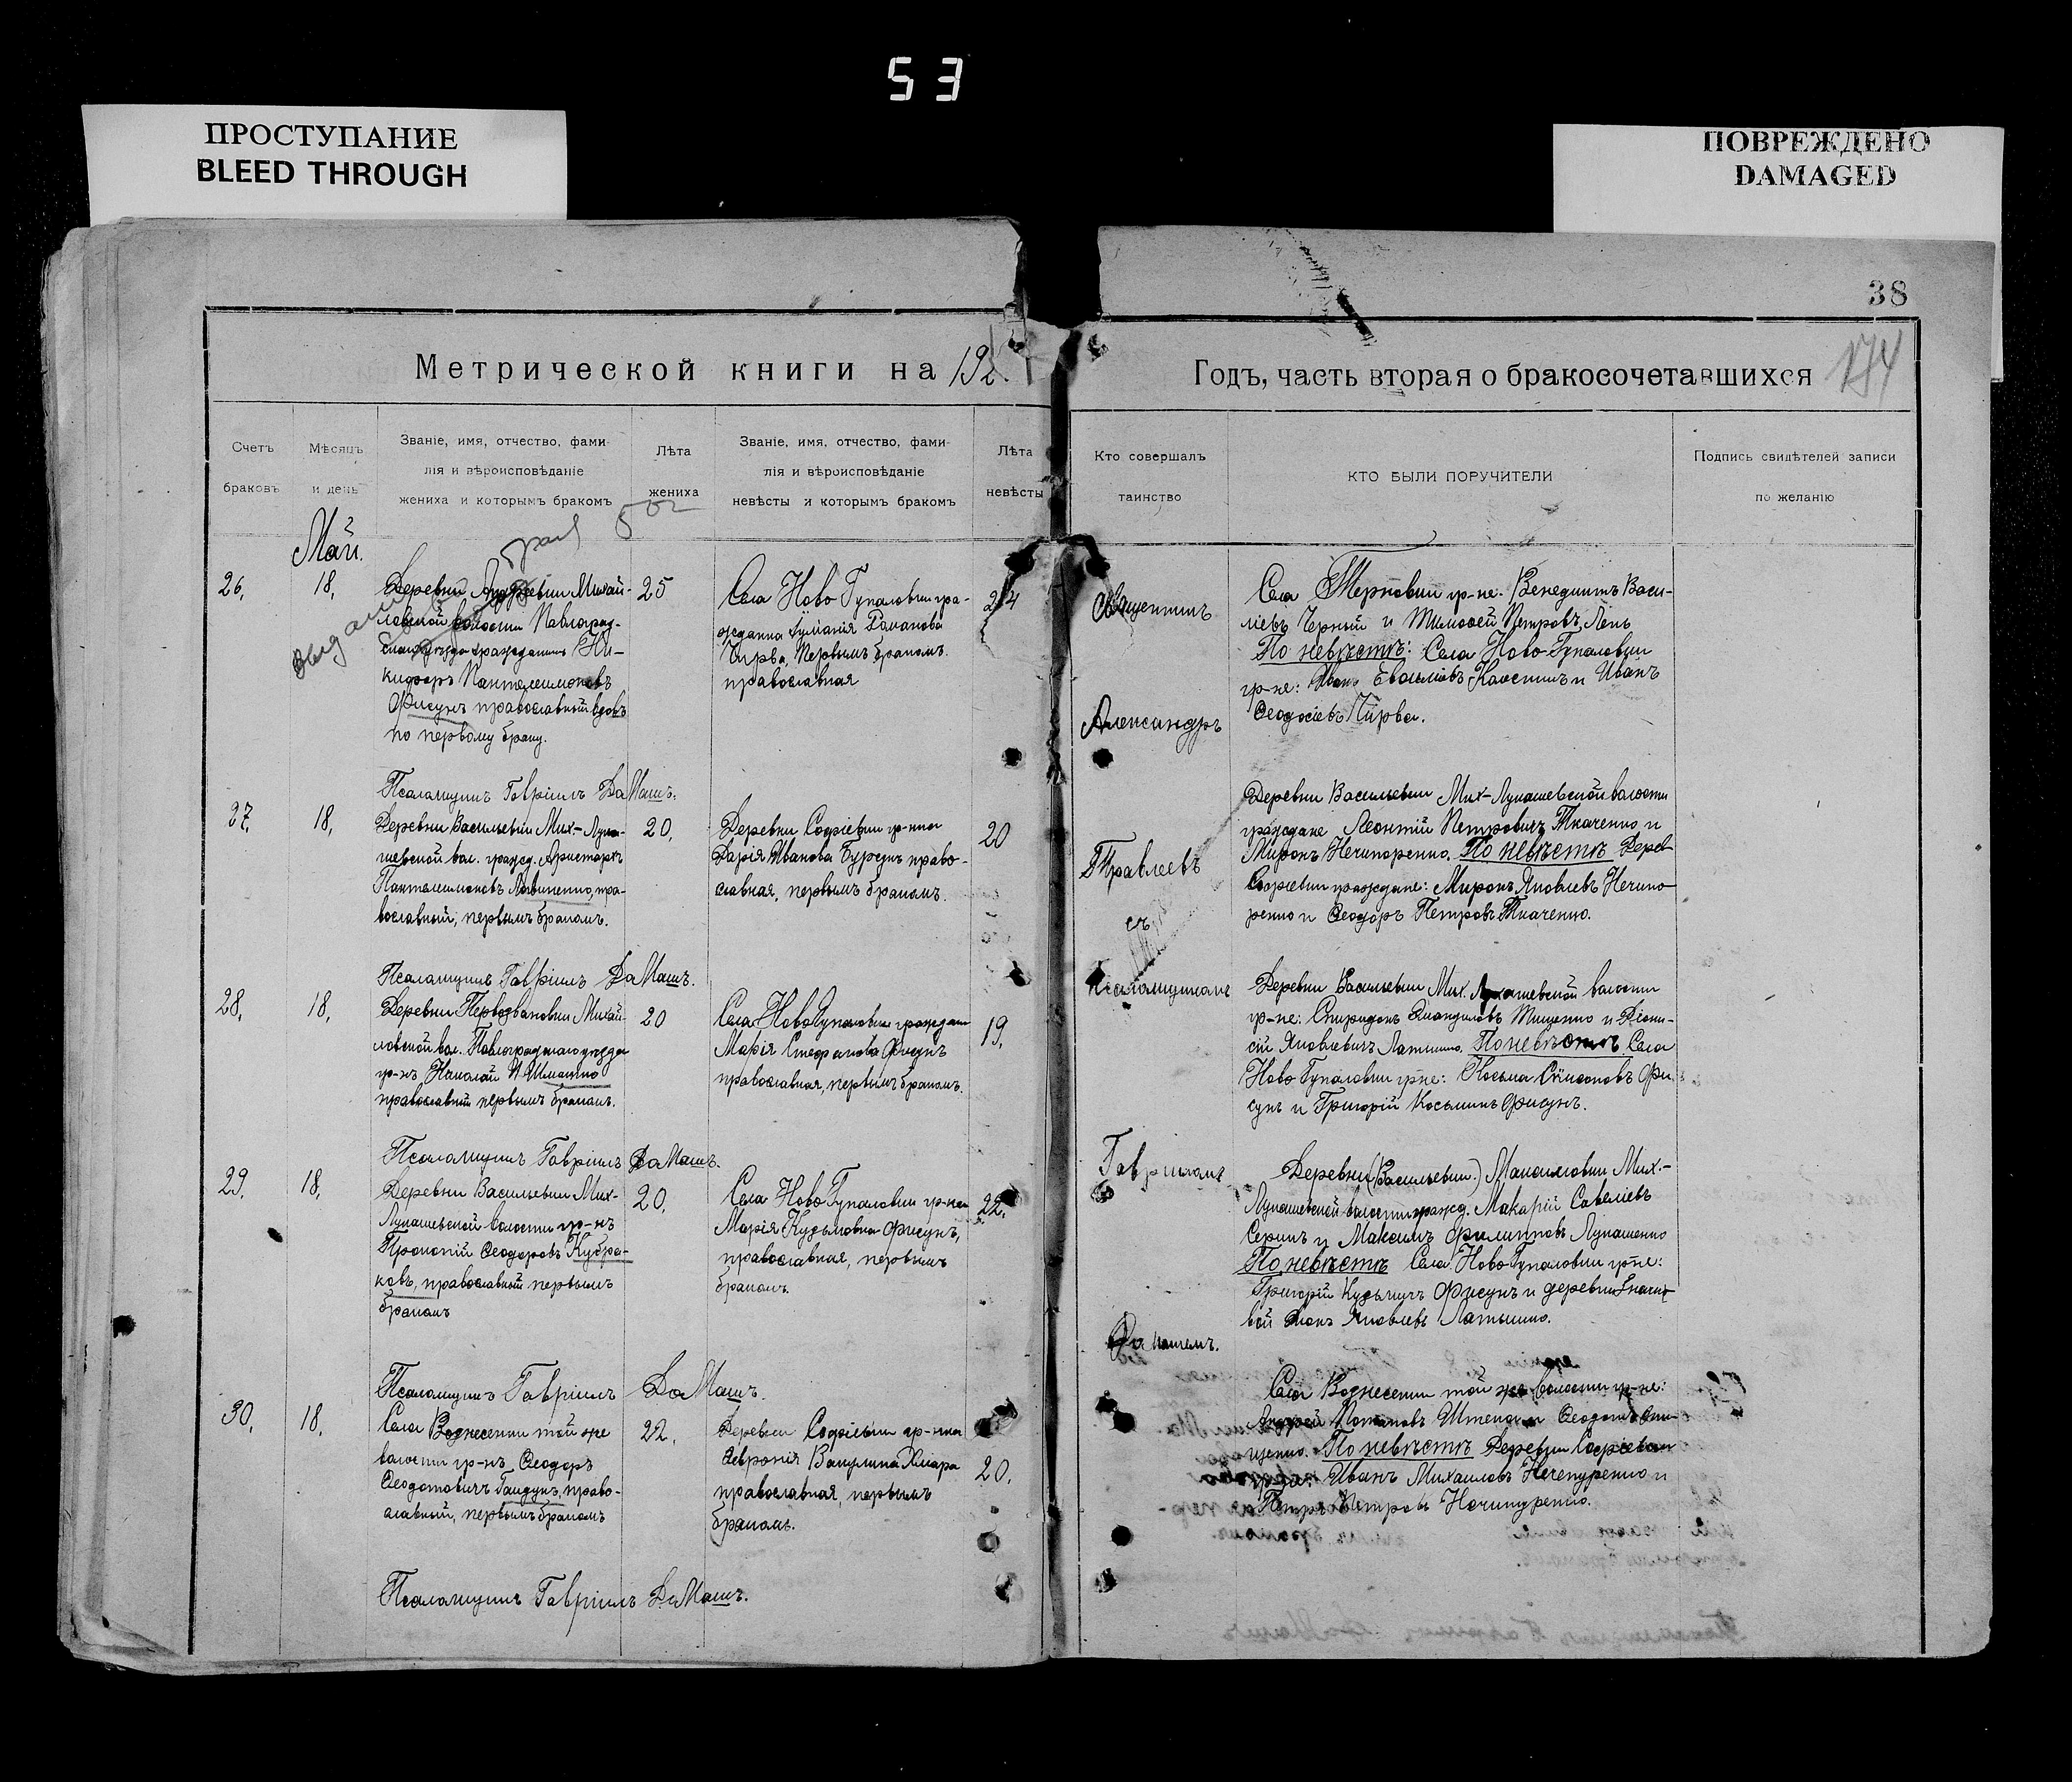 53
ПРОСТУПАНИЕ
BLEED THROUGH
ПОВРЕЖДЕНО
DAMAGED
38
Метрической книги на 192
Годъ, часть вторая о бракосочетавшихся
174
Счетъ
браковъ
Мѣсяцъ
и день
Званіе, имя, отчество, фами-
лія и вѣроисповѣданіе
жениха и которымъ бракомъ
Лѣта
жениха
Званіе, имя, отчество, фами-
лія и вѣроисповѣданіе
невѣсты и которымъ бракомъ
Лѣта
невѣсты
Кто совершалъ
таинство
КТО БЫЛИ ПОРУЧИТЕЛИ
Подпись свидѣтелей записи
по желанію
Май.
26.
18.
Деревни Андреевки Михай-
ловской волости Павлоград-
гражданинъ Ни-
кифоръ Пантелеимоновъ
Фисунъ православный вдовъ
по первому браку.
25
Села Ново Гупаловки гра-
жданка Романова
Чирва, первымъ бракомъ
православная
24
Священникъ
Александръ
Села Терновки гр-не: Венедиктъ Васи-
ліевъ Черный и Тимофей Петровъ Лень
По невѣстѣ: Села Ново Гупаловки
гр-не: Иванъ и Иванъ
Феодосіевъ Чирва.
Псаломщикъ Гавріилъ ДаМашъ.
27.
18.
Деревни Васильевки Мих-Лука-
шевской вол. гражд. Аристархъ
Пантелеимоновъ Литвиненко, пра-
вославный, первымъ бракомъ.
20.
Деревни Софіевки гр-нка
Дарія Иванова Бурсунъ право-
славная, первымъ бракомъ.
20
Травлеевъ
съ
Деревни Васильевки Мих-Лукашевской волости
граждане Леонтій Петровичъ Ткаченко и
Миронъ Нечипоренко. По невѣстѣ Дерев
Софіевки граждане: Миронъ Яковлевъ Нечипо-
ренко и Феодоръ Петровъ Ткаченко.
Псаломщикъ Гавріилъ ДаМашъ.
28.
18.
Деревни Первозвановки Михай-
ловской вол. Павлоградскаго уѣзда
гр-нъ Николай И Шматко
православный первымъ бракомъ.
20
Села Ново Гупаловки граждан
Марія Стефанова Фисунъ
православная, первымъ бракомъ.
19.
псаломщикомъ
Деревни Васильевки Мих. Лукашевской волости
гр-не: Спиридонъ Тищенко и Діони-
сій Яковлевичъ Латышко. По невѣстѣ Села
Ново Гупаловки гр-не: Косьма Симеоновъ Фи-
сунъ и Григорій Косьминъ Фисунъ.
Псаломщикъ Гавріилъ ДаМашъ.
29.
18.
Деревни Васильевки Мих-
Лукашевской волости гр-нъ
Прокопій Феодоровъ Кубра-
ковъ, православный первымъ
бракомъ
20.
Села Ново Гупаловки гр-нка
Марія Кузьмовна Фисунъ,
православная, первымъ
бракомъ.
22.
Гавріиломъ
ДаМашемъ.
Деревни (Васильевки) Максимовки Мих.-
Лукашевской волости гражд. Макарій Савеліевъ
Серикъ и Максимъ Филипповъ Лукашенко
По невѣстѣ Села Ново Гупаловки гр-не:
Григорій Кузьмичъ Фисунъ и деревни
вой Яковлевъ Латышко.
Псаломщикъ Гавріилъ ДаМашъ.
30.
18.
Села Вознесенки той же
волости гр-нъ Феодоръ
Феодотовичъ Гайдукъ, право-
славный, первымъ бракомъ
22.
Деревни Софіевки гр-нка
Февронія Вакулина Хмара
православная, первымъ
бракомъ.
20.
Села Вознесенки той же волости гр-не:
Андрей и Феодотъ Они-
щенко. По невѣстѣ Деревни Софіевки
гр-не: Иванъ Михаиловъ Нечепуренко и
Петръ Петровъ Нечипуренко.
Псаломщикъ Гавріилъ ДаМашъ.